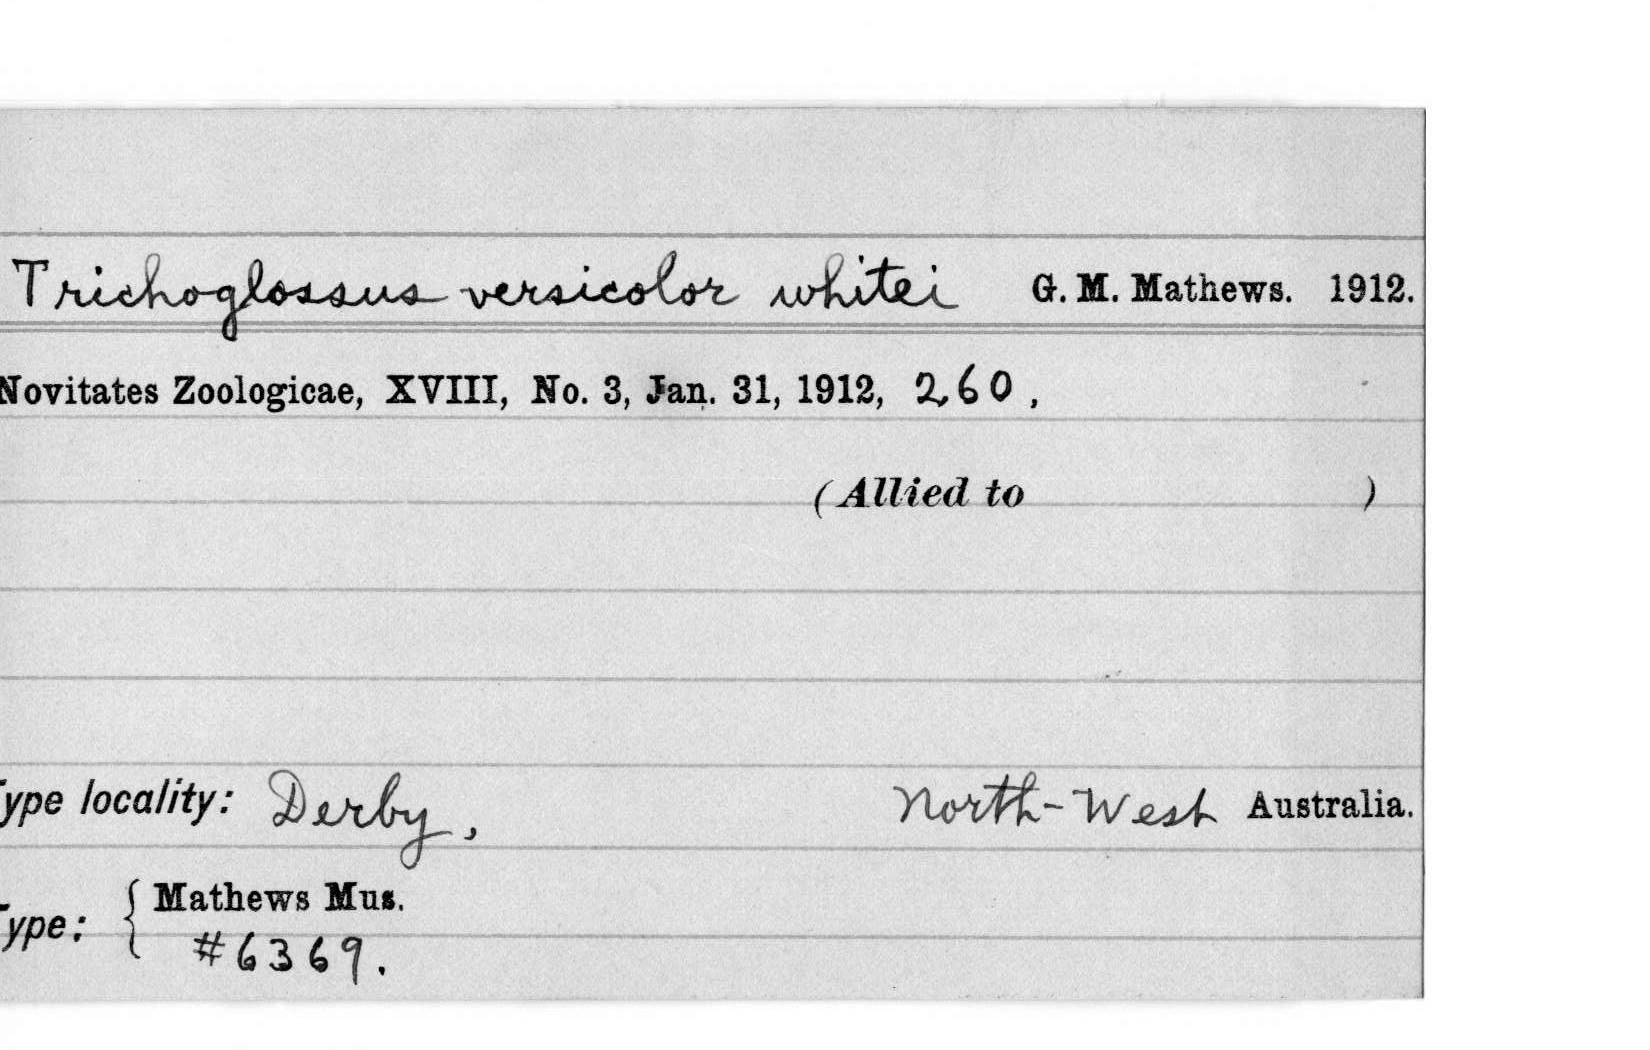 Trichoglossus versicolor whitei G. M. Mathews. 1912.
Novitates Zoologicae, XVIII, No. 3, Jan. 31, 1912, 260.
(Allied to )
Type locality: Derby, North-West Australia.
Type: { Mathews Mus.
#6369.